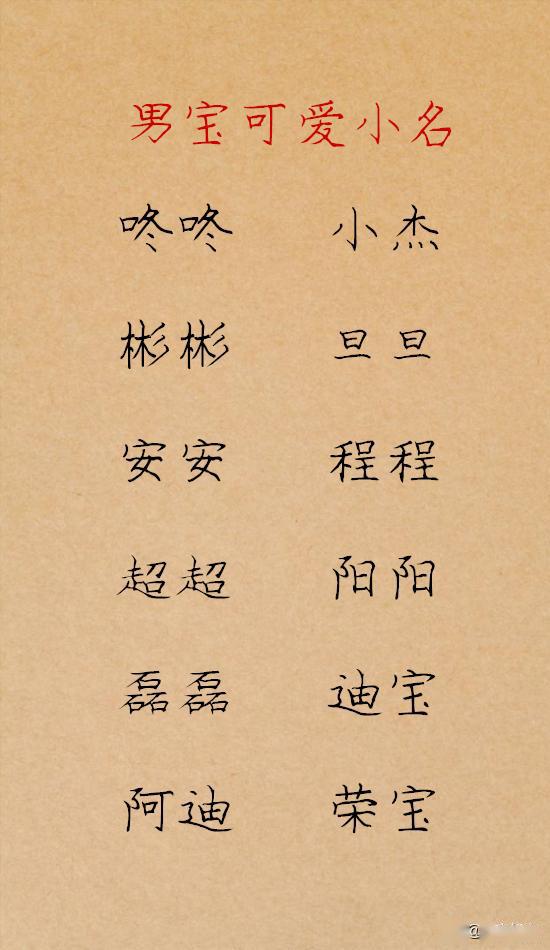 男宝可爱小名
咚咚 小杰
彬彬 旦旦
安安 程程
超超 阳阳
磊磊 迪宝
阿迪 荣宝